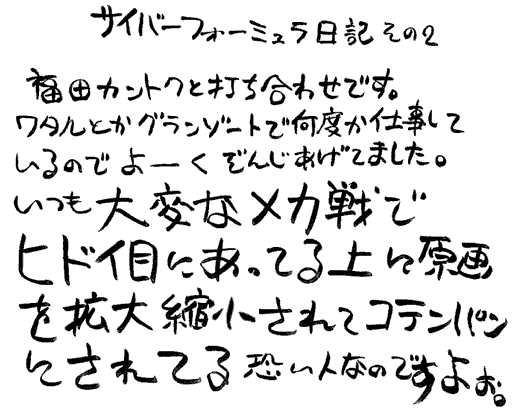 サイバーフォーミュラ日記その2
福田カントクと打ち合わせです。
ワタルとかグランゾートで何度か仕事して
いるのでよーくぞんじあげてました。
いつも大変なメカ戦で
ヒドイ目にあってる上に原画
を拡大縮小されてコテンパン
にされてる恐い人なのですよぉ。